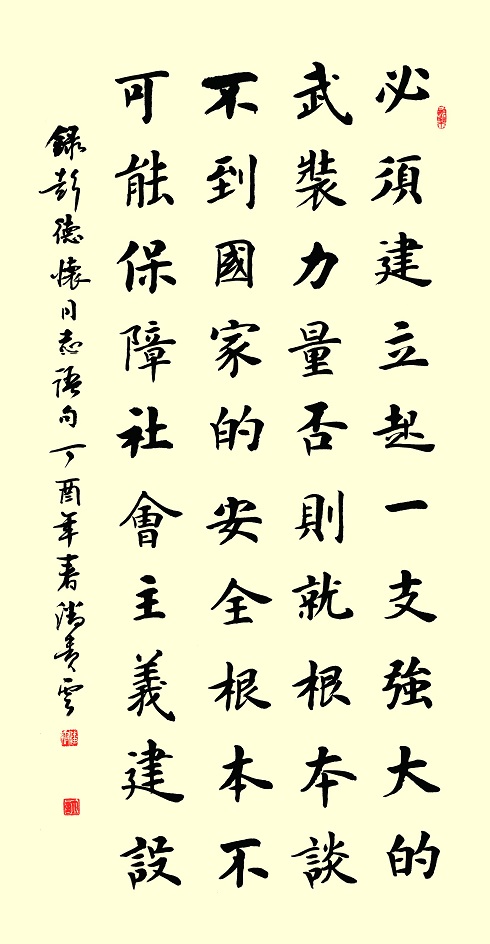 必須建立起一支強大的
武裝力量否則就根本談
不到國家的安全根本不
可能保障社會主義建設
錄彭德懷同志語句丁酉年春潘貴雲